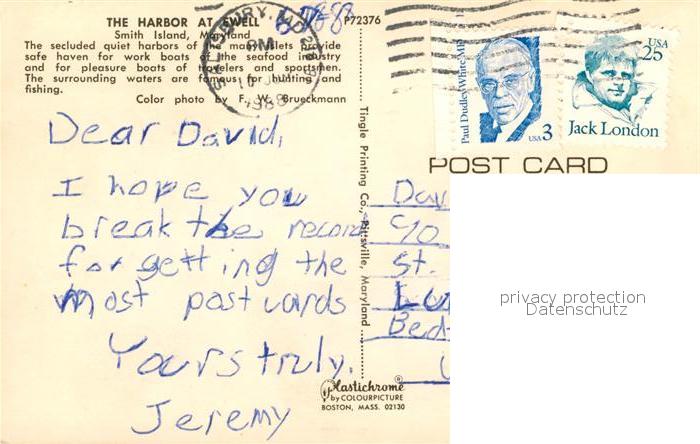 THE HARBOR AT EWELL
P72376
Smith Island, Maryland
The secluded quiet harbors of the many islets provide
safe haven for work boats of the seafood industry
and for pleasure boats of travelers and sportsmen.
The surrounding waters are famous for hunting and
fishing.
Color photo by F. W. Brueckmann
SALISBURY, MD
PM
1988
Paul Dudley White MD
USA 3
USA
25
Jack London
POST CARD
Dear David,
I hope you
break the record
for getting the
most postcards
Yours truly,
Jeremy
Tingle Printing Co., Pittsville, Maryland
Dav
c/o
St.
Bed
privacy protection
Datenschutz
Plastichrome ®
by COLOURPICTURE
BOSTON, MASS. 02130